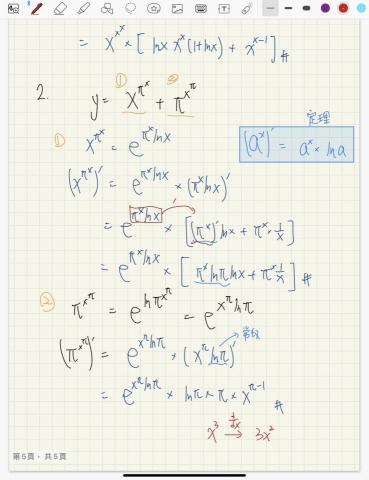 = x^{x^x} × [ lnx x^x (1+lnx) + x^{x-1} ] #
2. y = x^{π^x} + π^{x^π}
① ②
定理
(a^x)' = a^x × ln a
① x^{π^x} = e^{π^x lnx}
(x^{π^x})' = e^{π^x lnx} × (π^x lnx)'
= e^{π^x lnx} × [(π^x)' lnx + π^x × 1/x]
= e^{π^x lnx} × [π^x lnπ lnx + π^x 1/x] #
② π^{x^π} = e^{lnπ^{x^π}} = e^{x^π lnπ}
常数
(π^{x^π})' = e^{x^π lnπ} × (x^π lnπ)'
= e^{x^π lnπ} × lnπ × π × x^{π-1} #
x^3 → 3x^2
第5頁，共5頁